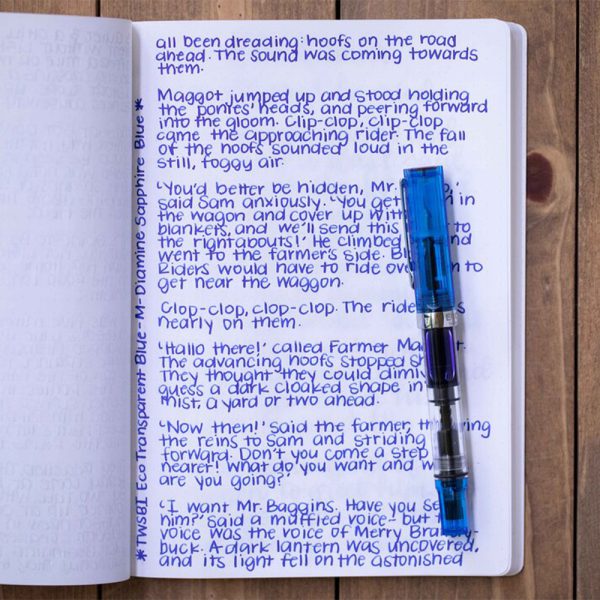 all been dreading: hoofs on the road
ahead. The sound was coming towards
them.
Maggot jumped up and stood holding
the ponies' heads, and peering forward
into the gloom. Clip-clop, clip-clop
came the approaching rider. The fall
of the hoofs sounded loud in the
still, foggy air.
'You'd better be hidden, Mr.
said Sam anxiously. 'You get in
the wagon and cover up with
blankets, and we'll send this to
the rightabouts!' He climbed
went to the farmer's side.
Riders would have to ride to
get near the waggon.
Clop-clop, clop-clop. The
nearly on them.
'Hallo there!' called Farmer
The advancing hoofs stopped
They thought they could
guess a dark cloaked shape in
mist, a yard or two ahead.
'Now then!' said the farmer,
the reins to Sam and striding
forward. Don't you come a step
nearer! What do you want and
are you going?'
'I want Mr. Baggins. Have you
him?' said a muffled voice- but
voice was the voice of Merry
buck. A dark lantern was uncovered,
and its light fell on the astonished
*TWSBI Eco Transparent Blue-M-Diamine Sapphire Blue*